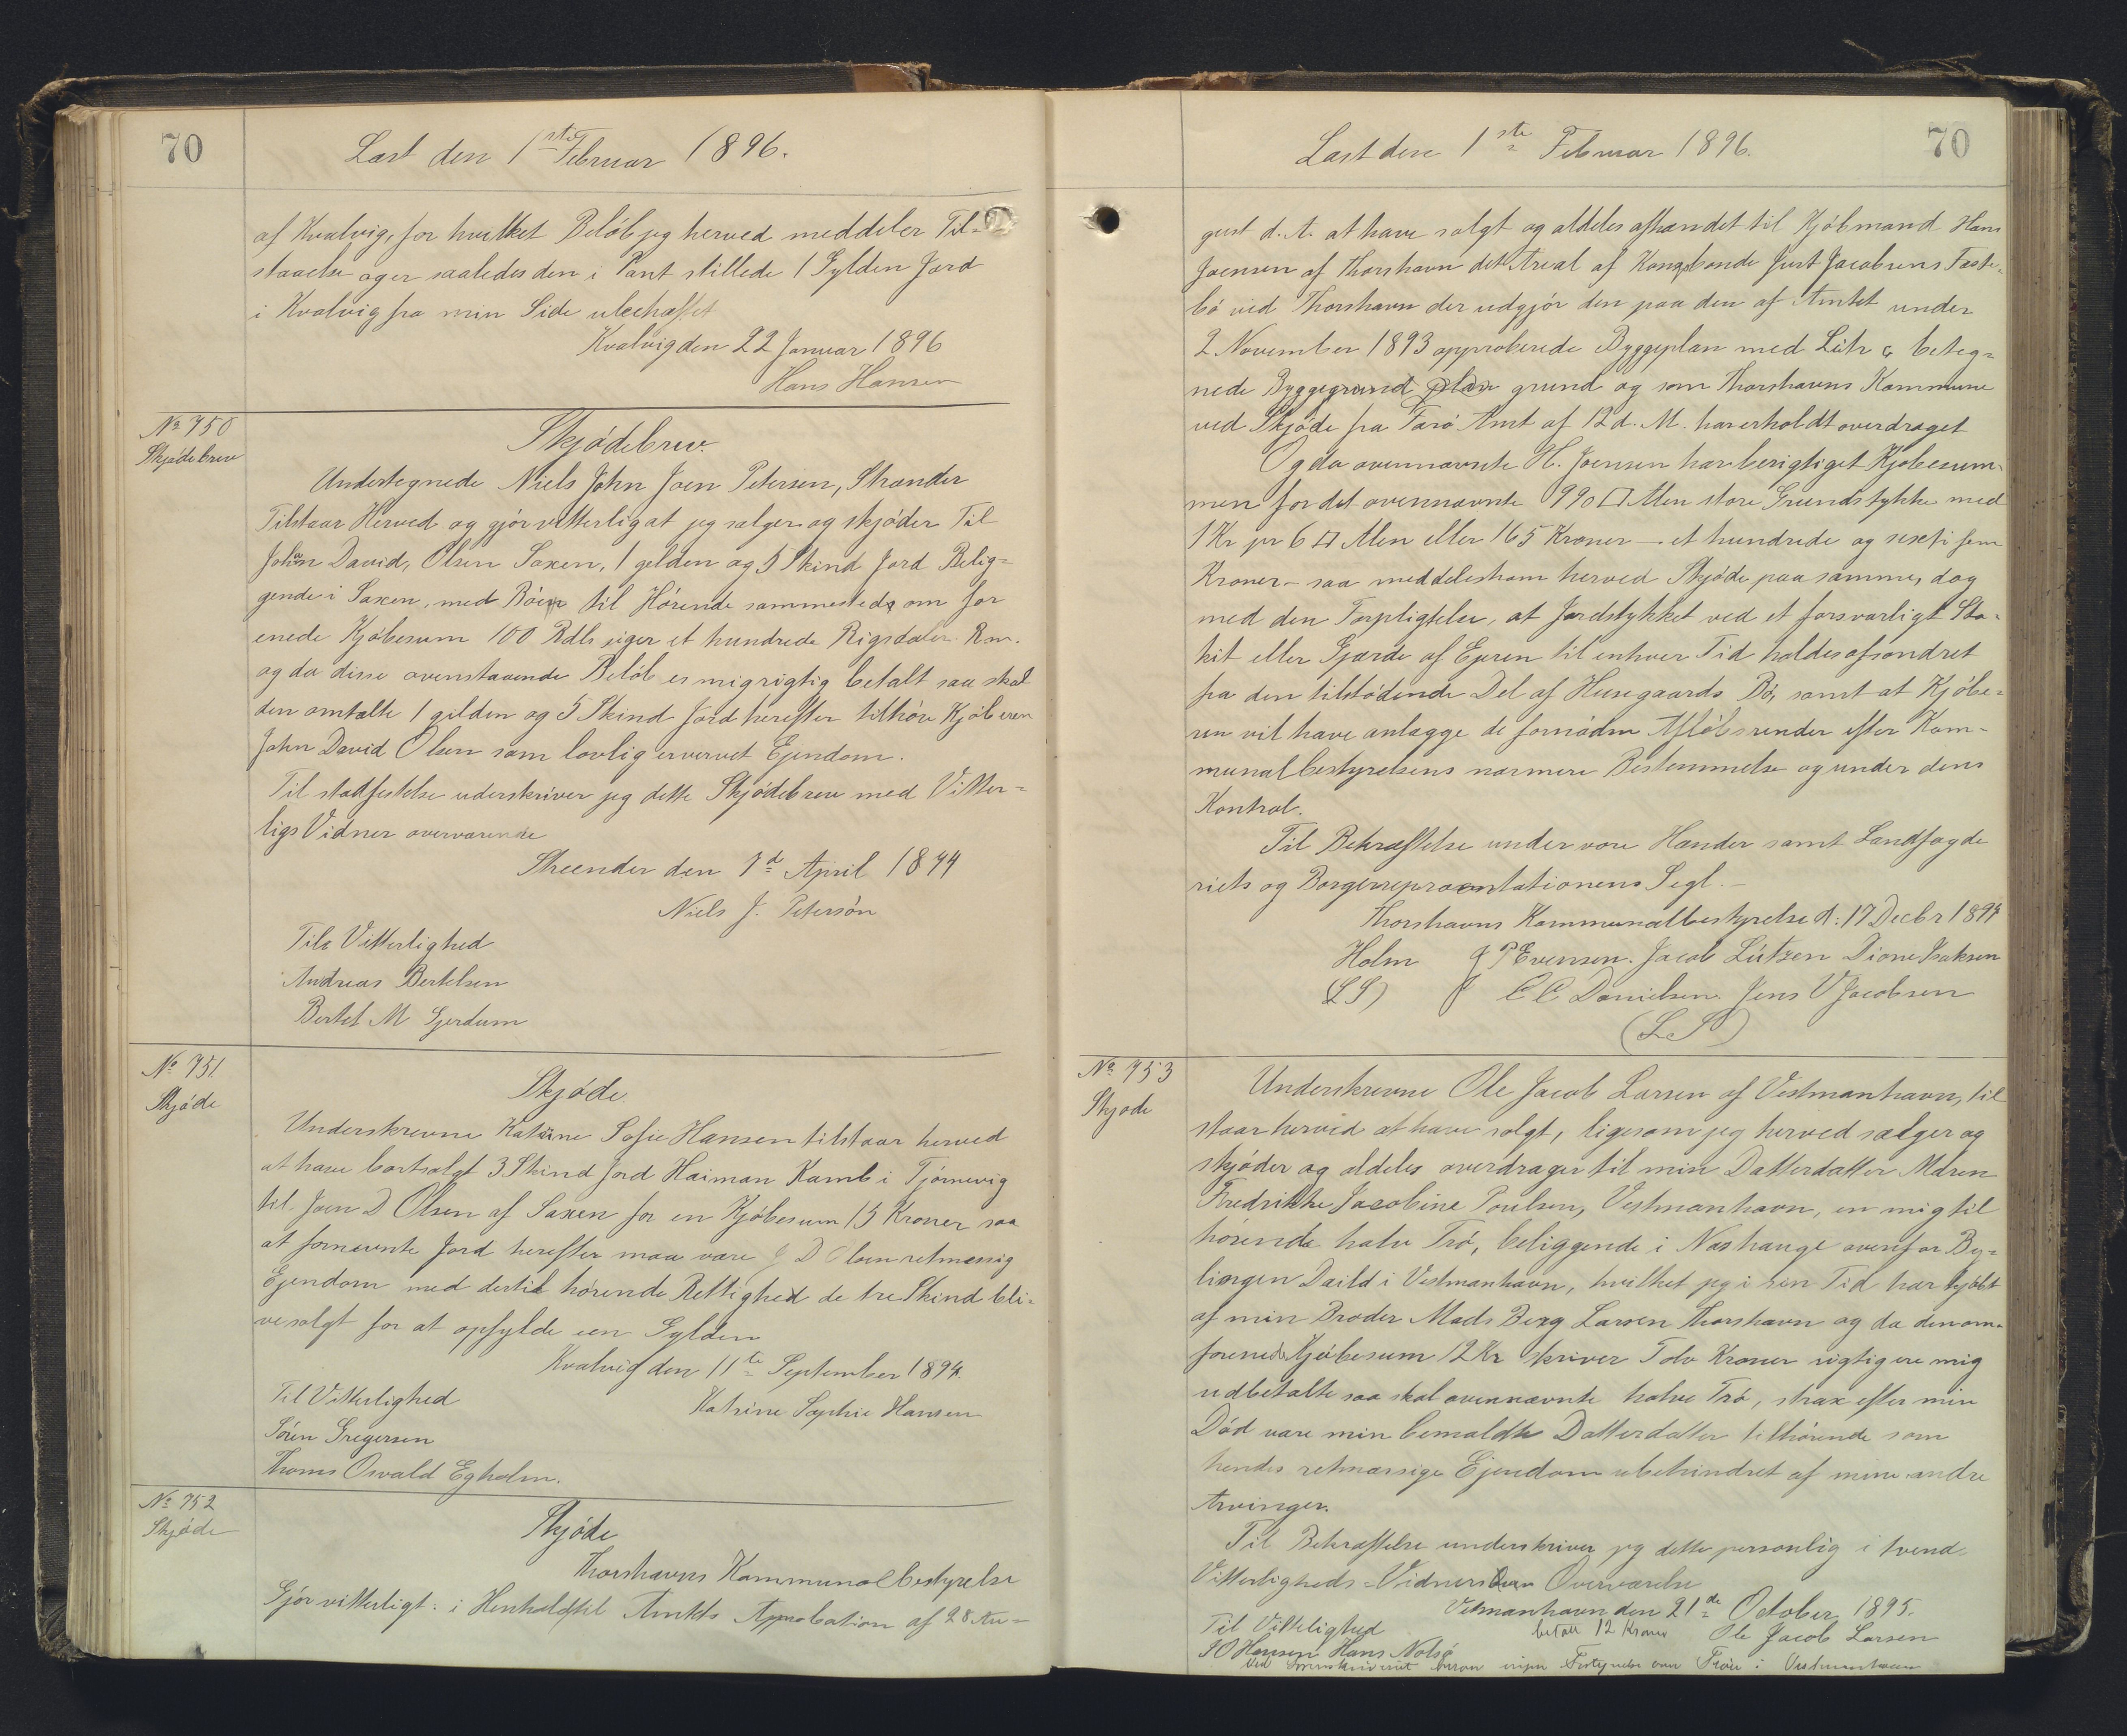 70
Læst den 1ste Februar 1896.
af Kvalvig, for hvilket Beløb jeg herved meddeler Til-
staaelse og er saaledes den i Pant stillede 1 Gylden Jord
i Kvalvig fra min Side ubehæftet
Kvalvig den 22 Januar 1896
Hans Hansen
No 750
Skjødebrev
Skjødebrev.
Undertegnede Niels John Joen Petersen, Strænder
Tilstaar Herved og gjør vitterlig at jeg sælger og skjøder Til
John David, Olsen Saxen, 1 gylden og 5 Skind Jord Belig=
gende i Saxen, med Bøen til Hørende sammesteds om for
enede Kjøbesum 100 Rdlr siger et hundrede Rigsdaler Rm.
og da disse ovenstaaende Beløb er mig rigtig betalt saa skal
den omtalte 1 gilden og 5 Skind Jord herefter tilhøre Kjøberen
John David Olsen som lovlig ervervet Ejendom.
Til stadfestelse uderskriver jeg dette Skjødebrev med Vitter=
ligs Vidner overværende
Streender den 7d April 1874
Niels J. Petersøn
Til Vitterlighed
Andreas Bertelsen
Bertel M Gjerdum
No 751.
Skjøde
Skjøde
Underskrevne Katrine Sofie Hansen tilstaar herved
at have bortsolgt 3 Skind Jord Haiman Kamb i Tjørnevig
til Joen D Olsen af Saxen for en Kjøbesum 15 Kroner saa
at fornevnte Jord herefter maa være J D Olsen retmessig
Ejendom med dertil hørende Rettighed de tre Skind bli=
ve solgt for at opfylde een Gylden
Kvalvig den 11te September 1894.
Til Vitterlighed
Katrine Sophie Hansen
Sørin Gregersen
Thoms Osvald Egholm.
No 752
Skjøde
Skjøde
Thorshavns Kommunalbestyrelse
Gjør vitterligt: i Henhold til Amtets Approbation af 28 Au=
Læst den 1ste Februar 1896.
70
gust d. A. at have solgt og aldeles afhændet til Kjøbmand Hans
Joensen af Thorshavn det Areal af Kongsbonde Just Jacobsens Fæste-
bø ved Thorshavn der udgjør den paa den af Amtet under
2 November 1893 approberede Byggeplan med Litr beteg=
nede Byggegrund grund og som Thorshavns Kommune
ved Skjøde fra Færø Amt af 12 d. M. har erholdt overdraget
Og da ovennævnte H. Joensen har berigtiget Kjøbesum-
men for det ovennævnte 990 □ Alen store Grundstykke med
1 Kr pr 6 □ Alen eller 165 Kroner - et hundrede og sexti fem
Kroner - saa meddeles ham herved Skjøde paa samme, dog
med den Forpligtelse, at Jordstykket ved et forsvarligt Sta-
kit eller Gjærde af Ejeren til enhver Tid holdes afsondret
fra den tilstødende Del af Husegaards Bø, samt at Kjøbe=
ren vil have anlægge de fornødne Afløbsrender efter Kom-
munalbestyrelsens nærmere Bestemmelse og under dens
Kontrol.
Til Bekræftelse under vore Hænder samt Landfogde
riets og Borgerrepræsentationens Segl. -
Thorshavns Kommunalbestyrelse d: 17 Decbr 1894
Holm J P Evensen. Jacob Lützen Dione Isaksen
(LS) C C Danielsen. Jens V Jacobsen
(LS)
No 753
Skjøde
Underskrevne Ole Jacob Larsen af Vestmanhavn, til
staar herved at have solgt, ligesom jeg herved sælger og
skjøder og aldeles overdrager til min Datterdatter Maren
Fredrikke Jacobine Poulsen, Vestmanhavn, en mig til
hørende halv Trø, beliggende i Nashauge ovenfor By=
lingen Daild i Vestmanhavn, hvilket jeg i sin Tid har kjøbt
af min Broder Mads Berg Larsen Thorshavn og da den om-
forenede Kjøbesum 12 Kr skriver Tolv Kroner rigtig ere mig
udbetalte saa skal ovennævnte halve Trø, strax efter min
Død være min bemældte Datterdatter tilhørende som
hendes retmæssige Ejendom ubehindret af mine andre
Arvinger.
Til Bekræftelse underskriver jeg dette personlig i tvend
Vitterligheds=Vidners Overværelse
Vetmanhavn den 21de October 1895.
Til Vitteligthed
betalt 12 Kroner Ole Jacob Larsen
J O Hansen Hans Nolsø
ingen i Vestmanhavn